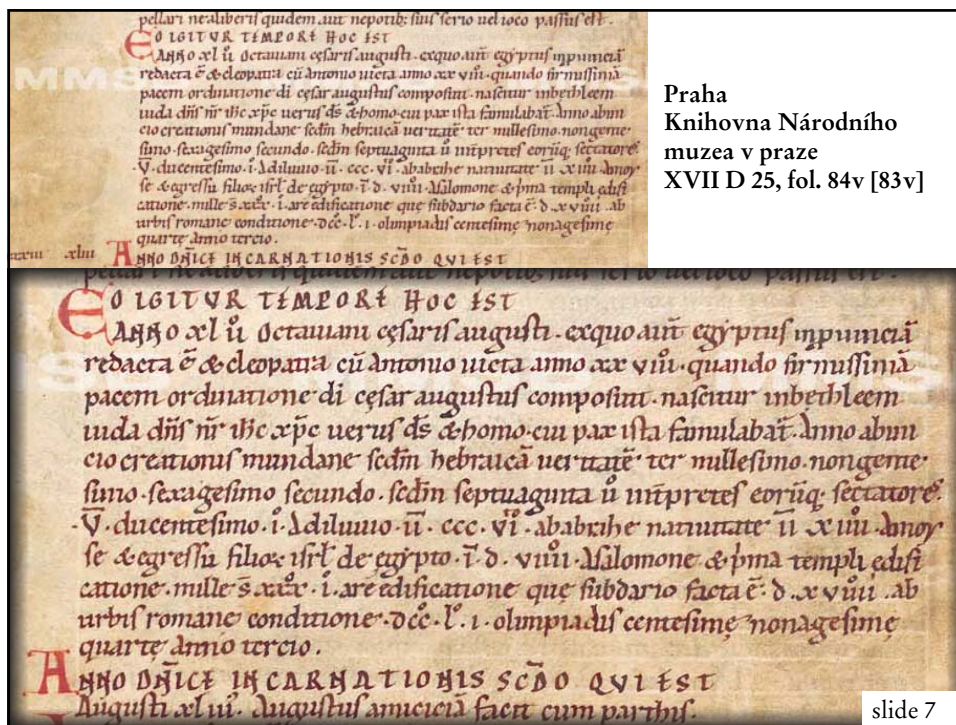 pellari ne aliberis quidem aut nepotib; suis serio uel ioco passus est.
EO IGITVR TEMPORE HOC EST
ANNO xl u̇ Octauiani cęsaris augusti . exquo aut̄ egẏptus inpuinciā
redacta ē & cleopatra cū antonio uicta anno xx viii . quando firmissimā
pacem ordinatione di cęsar augustus composuit . nascitur inbethleem
iuda dn̄s nr̄ ihc xp̄c uerus ds̄ & homo . cui pax ista famulabat̄ . Anno abini
cio creationis mundane scdm̄ hebraicā ueritatē ter millesimo . nongente
simo . sexagesimo secundo . scdm̄ septuaginta
V̄ . ducentesimo . i . Adiluuio . īī . ccc . vi . ababrahe natiuitate īī x iiii . Amoy
se & egressu filioꝝ isrl̄ de egẏpto . ī d . viiii . Asalomone & p̍ma templi edifi
catione . mille
urbis romane conditione . dcc . l . i . olimpiadis centesimę nonagesimę
quartę anno tercio .
xliii
ANNO DN̄ICE INCARNATIONIS SCD̄O QVI EST
Praha
Knihovna Národního
muzea v praze
XVII D 25, fol. 84v [83v]
EO IGITVR TEMPORE HOC EST
ANNO xl u̇ Octauiani cęsaris augusti . exquo aut̄ egẏptus inpuinciā
redacta ē & cleopatra cū antonio uicta anno xx viii . quando firmissimā
pacem ordinatione di cęsar augustus composuit . nascitur inbethleem
iuda dn̄s nr̄ ihc xp̄c uerus ds̄ & homo . cui pax ista famulabat̄ . Anno abini
cio creationis mundane scdm̄ hebraicā ueritatē ter millesimo . nongente
simo . sexagesimo secundo . scdm̄ septuaginta u̇ int̄pretes eorūq; sectatores .
V̄ . ducentesimo . i . Adiluuio . īī . ccc . vi . ababrahe natiuitate īī x iiii . Amoy
se & egressu filioꝝ isrl̄ de egẏpto . ī d . viiii . Asalomone & p̍ma templi edifi
catione . mille s̄ xxx . i . are edificatione que subdario facta ē . d . x viiii . ab
urbis romane conditione . dcc . l . i . olimpiadis centesimę nonagesimę
quartę anno tercio .
ANNO DN̄ICE INCARNATIONIS SCD̄O QVI EST
Augusti xl ui . Augustus amiciciā facit cum parthis .
slide 7